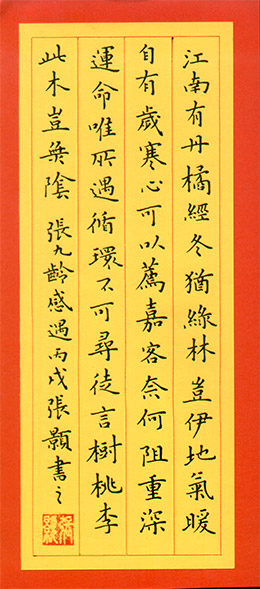 江南有丹橘經冬猶綠林豈伊地氣暖
自有歲寒心可以薦嘉客奈何阻重深
運命唯所遇循環不可尋徒言樹桃李
此木豈無陰 張九齡感遇丙戌張顥書之